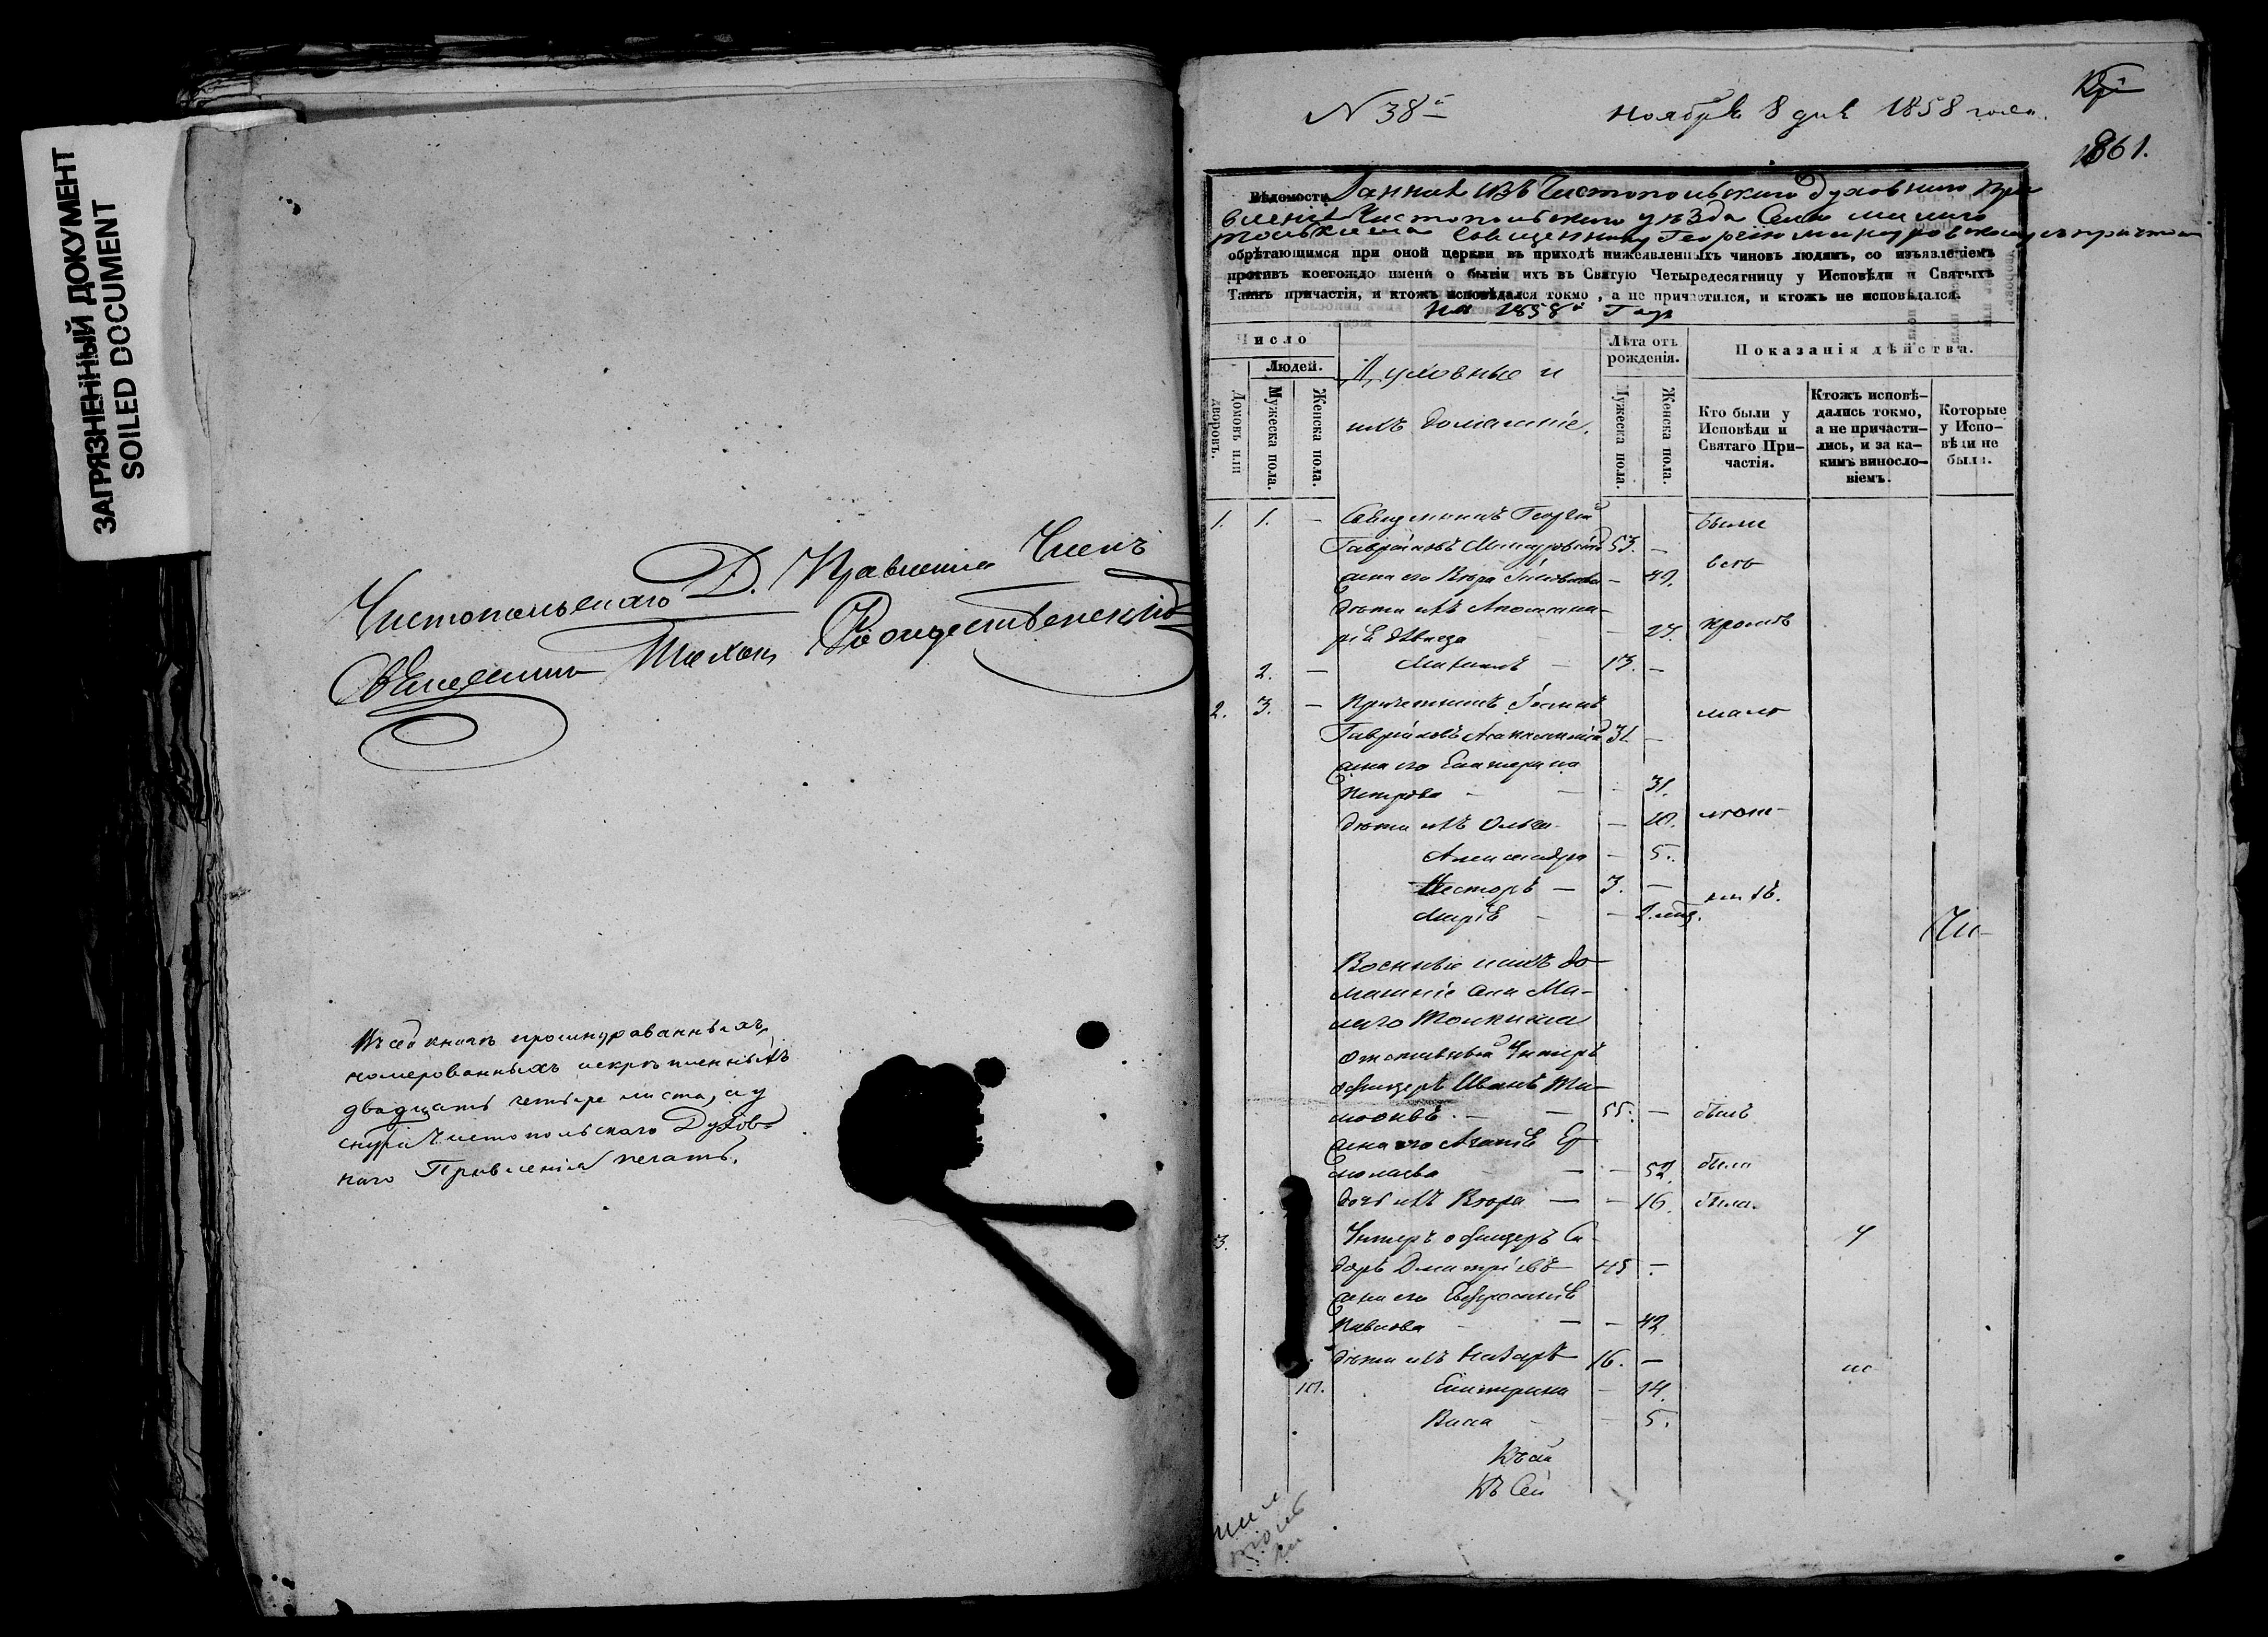 ЗАГРЯЗНЕННЫЙ ДОКУМЕНТ
SOILED DOCUMENT
Чистопольскаго Д. Правления Членъ
Священникъ Рождественскій
Въ сей книгѣ прошнурованныхъ,
номерованныхъ и скрѣпленныхъ
двадцать четыре листа, а у
снура Чистопольскаго Духов-
наго Правленія печать.
N 38й Ноября 8 дня 1858 года.
1861.
Вѣдомость Данная изъ Чистопольскаго Духовнаго Пра
вленія Чистопольскаго уѣзда Села Малаго
Толкиша Священнику Георгію съ причтомъ
обрѣтающимся при оной церкви въ приходѣ нижеявленныхъ чиновъ людямъ, со изъявленіемъ
противъ коегождо имени о бытіи ихъ въ Святую Четыредесятницу у Исповѣди и Святыхъ
Таинъ причастія, и ктожъ исповѣдался токмо, а не причастился, и ктожъ не исповѣдался.
на 1858й Годъ
Число
Людей.
Домовъ или дворовъ.
Мужеска пола.
Женска пола.
Духовные и
ихъ домашніе.
Лѣта отъ рожденія.
Мужеска пола.
Женска пола.
Показанія дѣйства.
Кто были у Исповѣди и Святаго Причастія.
Ктожъ исповѣ-дались токмо, а не причасти-лись, и за ка-кимъ винсло-віемъ.
Которые у Испо-вѣди не были.
1. 1. — Священникъ Георгій были
Гавриловъ 53. —
жена его Вѣра — 49. всѣ
дѣти ихъ Аполлина-
рія дѣвица — 24. кромѣ
2. — Михаилъ — 13. —
2. 3. — Причетникъ Іоаннъ мало
Гавриловъ 31. —
жена его Екатерина
Петрова — — 31.
дѣти ихъ Ольга — 10. лѣт-
Александра — 5.
Несторъ — 3. — нихъ.
Марія — —
Военные и ихъ до-
машніе села Ма-
лаго Толкиша
отставной Унтеръ
офицеръ Иванъ Ти-
моѳѣевъ. — 55. — былъ
жена его Агаѳія Ер
молаева — — 52. была
дочь ихъ Вѣра — — 16. была.
3. Унтеръ офицеръ Си
доръ Дмитріевъ 45 —
жена его Евфросинія
Павлова — — 42.
дѣти ихъ Назаръ 16. —
10. Екатерина — 14.
Васса — — 5.
Къ сей